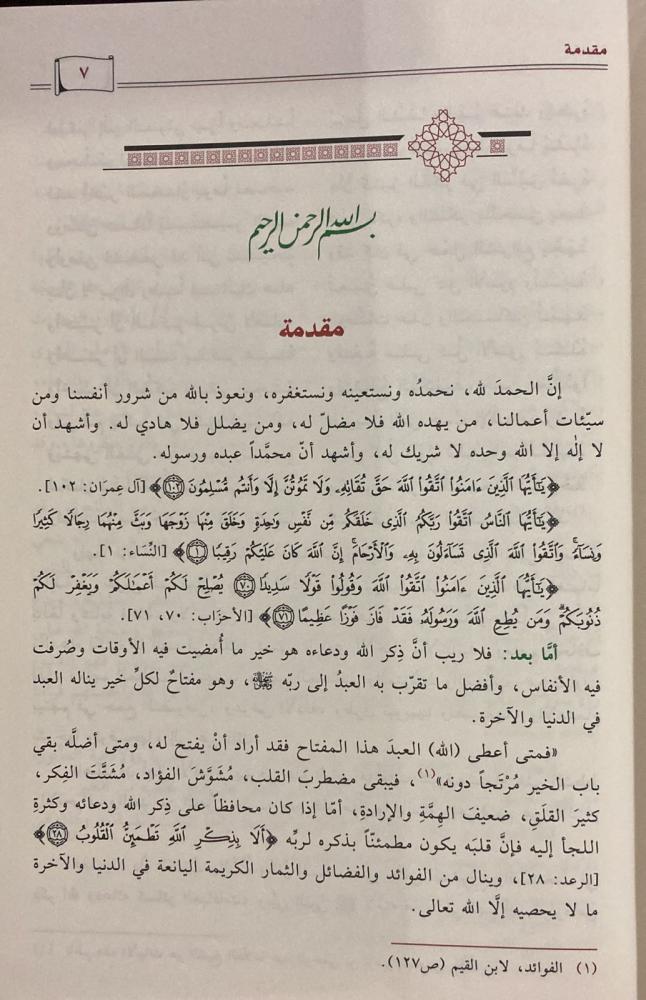 مقدمة
٧
بسم الله الرحمن الرحيم
مقدمة
إنَّ الحمدَ لله، نحمدُه ونستعينه ونستغفره، ونعوذ بالله من شرور أنفسنا ومن
سيّئات أعمالنا، من يهده الله فلا مضلّ له، ومن يضلل فلا هادي له. وأشهد أن
لا إلٰه إلا الله وحده لا شريك له، وأشهد أنّ محمَّداً عبده ورسوله.
﴿يَٰٓأَيُّهَا ٱلَّذِينَ ءَامَنُوا۟ ٱتَّقُوا۟ ٱللَّهَ حَقَّ تُقَاتِهِۦ وَلَا تَمُوتُنَّ إِلَّا وَأَنتُم مُّسْلِمُونَ ١٠٢﴾ [آل عِمرَان: ١٠٢].
﴿يَٰٓأَيُّهَا ٱلنَّاسُ ٱتَّقُوا۟ رَبَّكُمُ ٱلَّذِى خَلَقَكُم مِّن نَّفْسٍ وَٰحِدَةٍ وَخَلَقَ مِنْهَا زَوْجَهَا وَبَثَّ مِنْهُمَا رِجَالًا كَثِيرًا
وَنِسَآءً وَٱتَّقُوا۟ ٱللَّهَ ٱلَّذِى تَسَآءَلُونَ بِهِۦ وَٱلْأَرْحَامَ إِنَّ ٱللَّهَ كَانَ عَلَيْكُمْ رَقِيبًا ١﴾ [النِّسَاء: ١].
﴿يَٰٓأَيُّهَا ٱلَّذِينَ ءَامَنُوا۟ ٱتَّقُوا۟ ٱللَّهَ وَقُولُوا۟ قَوْلًا سَدِيدًا ٧٠ يُصْلِحْ لَكُمْ أَعْمَٰلَكُمْ وَيَغْفِرْ لَكُمْ
ذُنُوبَكُمْ وَمَن يُطِعِ ٱللَّهَ وَرَسُولَهُۥ فَقَدْ فَازَ فَوْزًا عَظِيمًا ٧١﴾ [الأحزَاب: ٧٠، ٧١].
أمَّا بعد: فلا ريب أنَّ ذِكر الله ودعاءه هو خير ما أُمضيت فيه الأوقات وصُرفت
فيه الأنفاس، وأفضل ما تقرّب به العبدُ إلى ربّه ﷺ، وهو مفتاحٌ لكلِّ خير يناله العبد
في الدنيا والآخرة.
«فمتى أعطى (الله) العبدَ هذا المفتاح فقد أراد أنْ يفتح له، ومتى أضلَّه بقي
باب الخير مُرْتَجاً دونه»(١)، فيبقى مضطربَ القلب، مُشَوَّشَ الفؤاد، مُشَتَّتَ الفِكر،
كثيرَ القلَقِ، ضعيفَ الهِمَّةِ والإرادةِ، أمّا إذا كان محافظاً على ذِكر الله ودعائه وكثرةِ
اللجأ إليه فإنَّ قلبَه يكون مطمئنّاً بذكره لربِّه ﴿أَلَا بِذِكْرِ ٱللَّهِ تَطْمَئِنُّ ٱلْقُلُوبُ ٢٨﴾
[الرعد: ٢٨]، وينال من الفوائد والفضائل والثمار الكريمة اليانعة في الدنيا والآخرة
ما لا يحصيه إلَّا الله تعالى.
(١) الفوائد، لابن القيم (ص١٢٧).